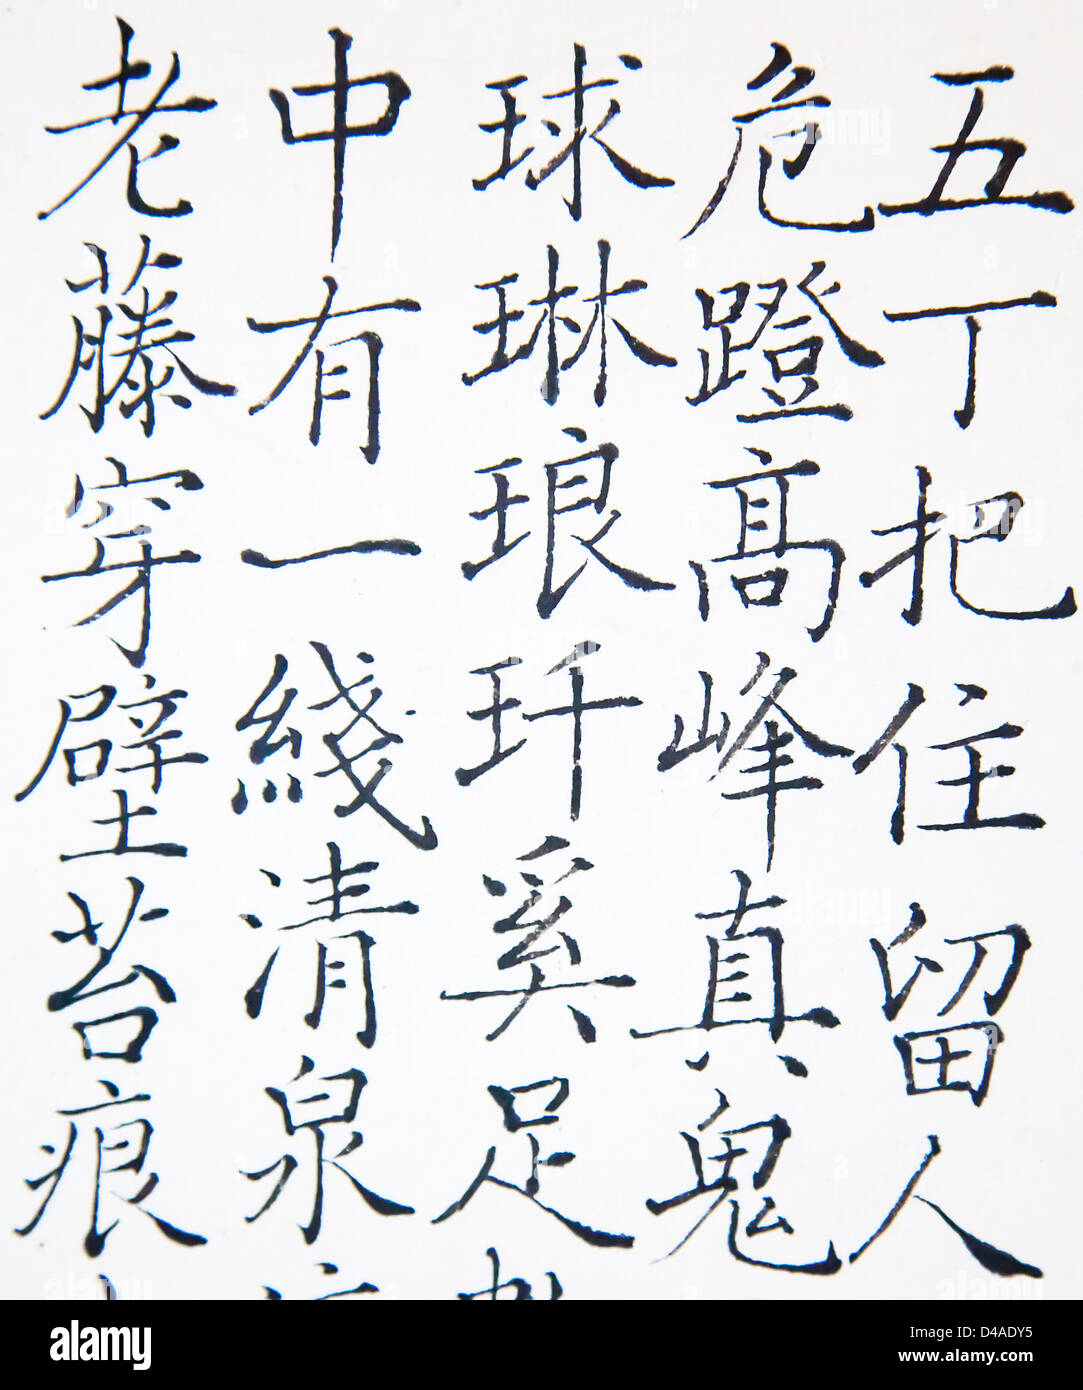 五丁把住留人
危蹬高峰真鬼
球琳琅玕奚足
中有一綫清泉
老藤穿壁苔痕
alamy
Image ID: D4ADY5
www.alamy.com